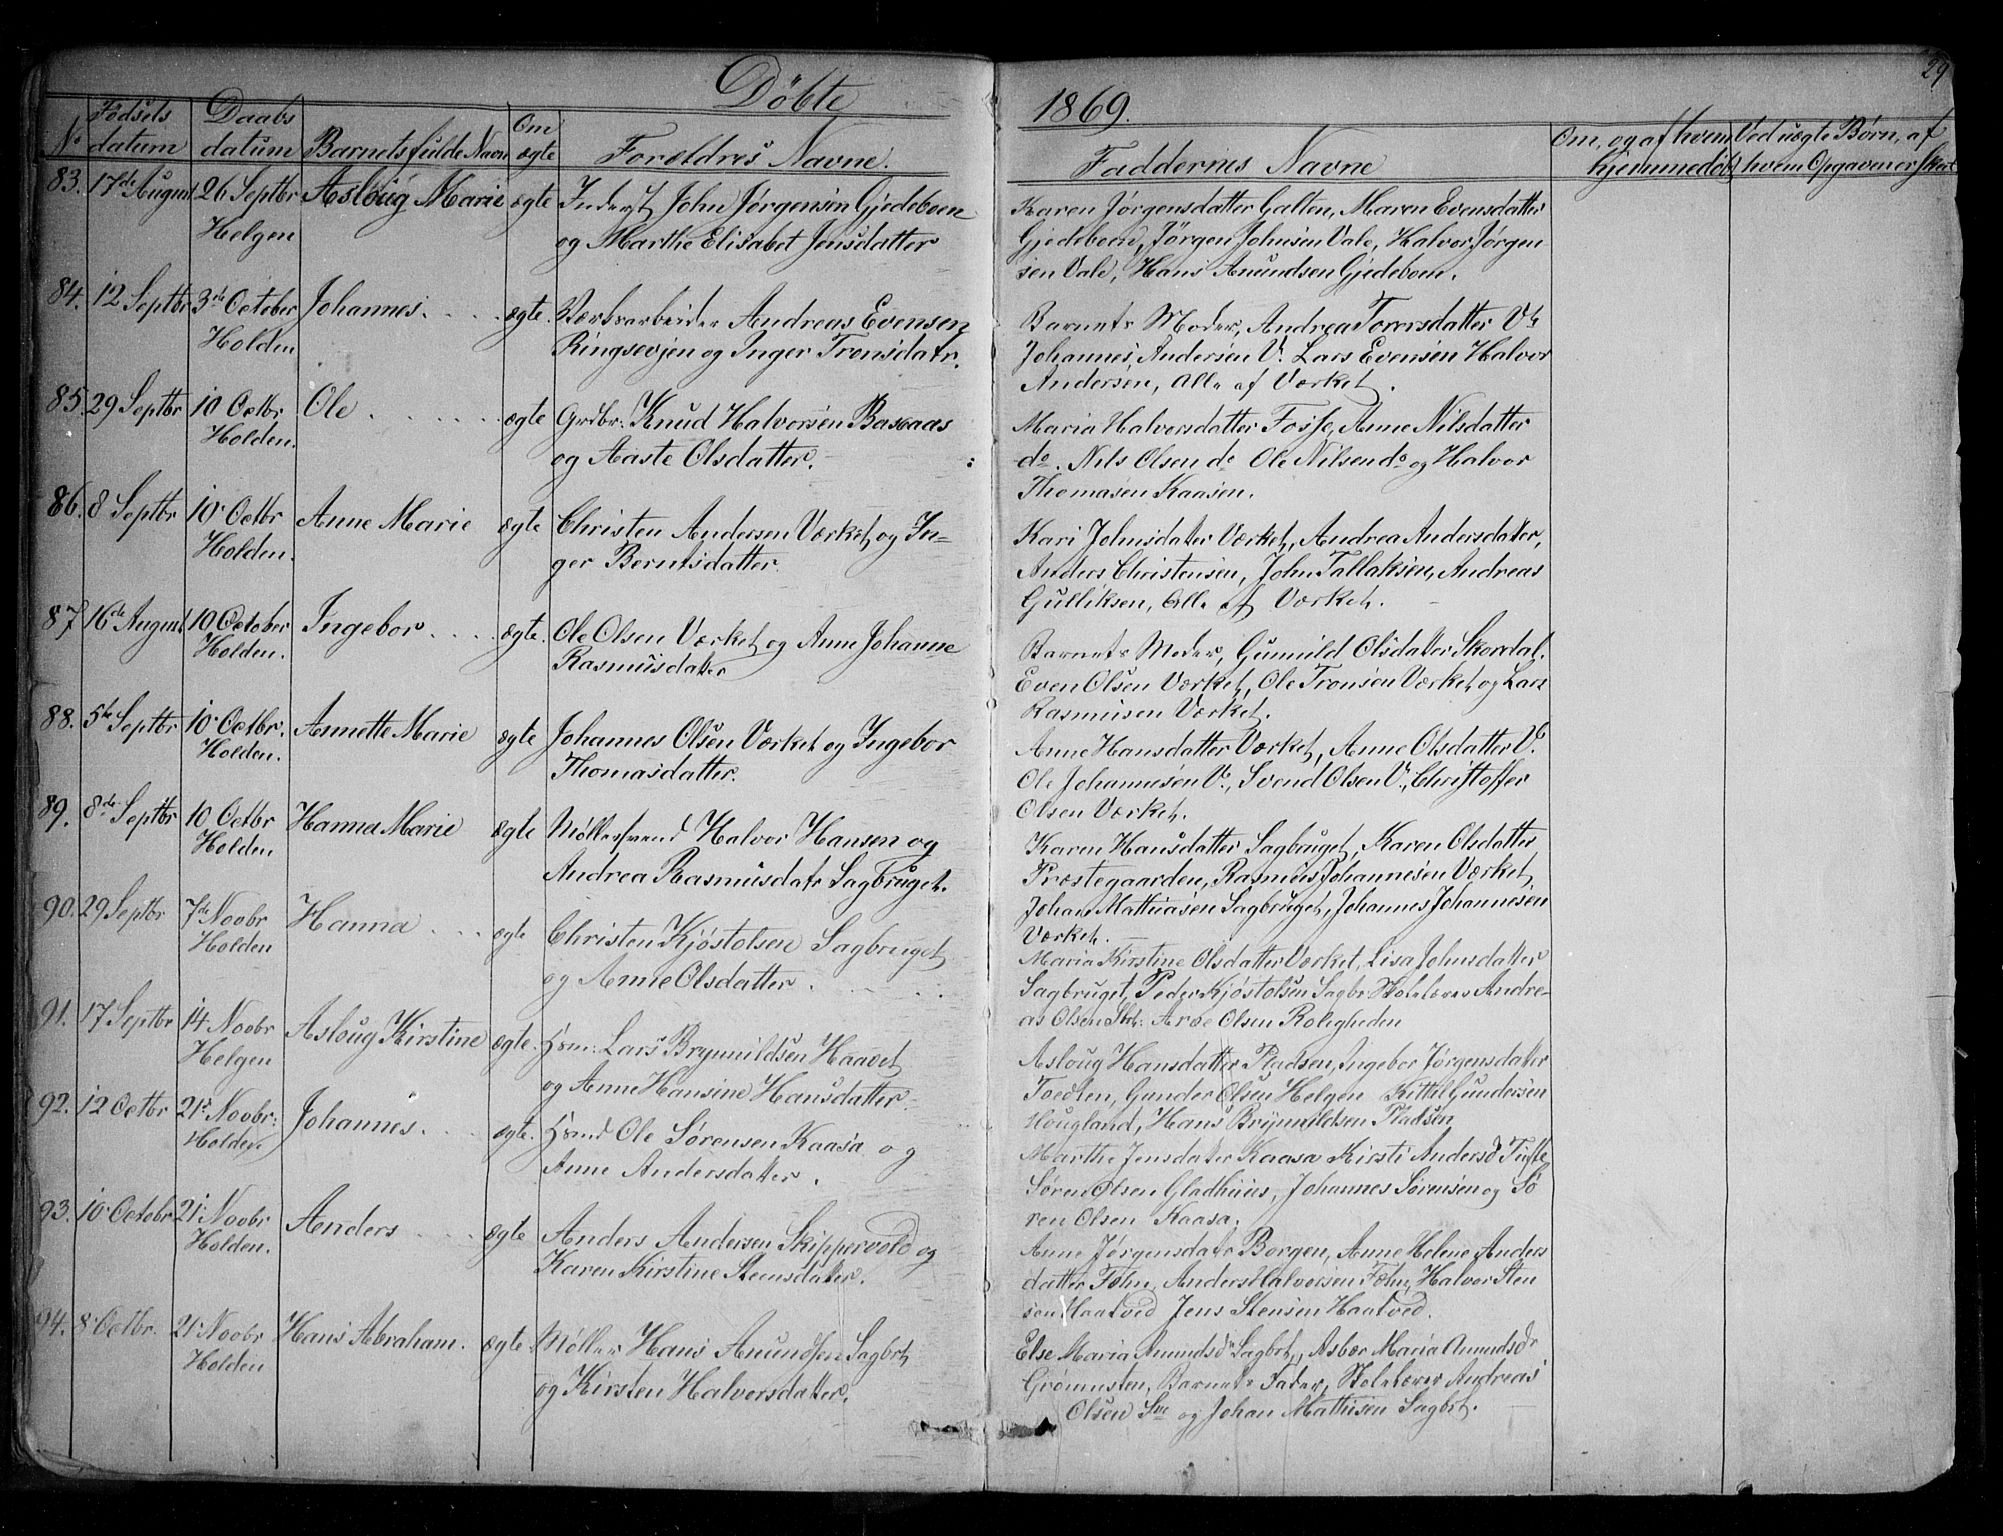 Döbte
1869.
29
No
Fødsels datum
Daabs datum
Barnets fulde Navn
Om ægte
Forældres Navne.
Faddernes Navne
Om, og af hvem hjemmedøbt
Ved uægte Børn, af hvem Opgaven er skeet
83. 17de August 26 Septbr Asloug Marie ægte Inderst John Jørgensen Gjedeboen
Helgen og Marthe Elisabet Jensdatter
Karen Jørgensdatter Galten, Maren Evensdatter
Gjedeboen, Jørgen Johnsen Vale, Halvor Jørgen
sen Vale, Hans Anundsen Gjedeboen.
84. 12 Septbr 3de October Johannes. ægte. Værksarbeider Andreas Evensen
Holden Ringsevjen og Inger Tronsdatr.
Barnets Moder, Andrea Torersdatter V.
Johannes Andersen V. Lars Evensen Halvor
Andersen, Alle af Værket.
85. 29 Septbr 10 Octbr Ole ægte Grdbr: Knud Halvorsen Basaas
Holden. og Aaste Olsdatter.
Maria Halvorsdatter Fosse, Anne Nilsdatter
do. Nils Olsen do Ole Nilsen do og Halvor
Thomasen Kaasen.
86. 8 Septbr 10 Octbr Anne Marie ægte Christen Andersen Værket og In-
Holden. ger Berntsdatter
Kari Johnsdater Værket, Andrea Andersdater,
Anders Christensen, John Tallaksen, Andreas
Gulliksen, Alle af Værket.
87 16de August 10 October Ingebor ægte. Ole Olsen Værket og Anne Johanne
Holden. Rasmusdater
Barnets Moder, Gunnild Olsdatter Skordal.
Even Olsen Værket, Ole Tronsen Værket og Lars
Rasmusen Værket.
88. 5te Septbr 10 Octbr. Annette Marie ægte Johannes Olsen Værket og Ingebor
Holden. Thomasdatter.
Anne Hansdatter Værket, Anne Olsdatter V.
Ole Johannesen V., Svend Olsen V., Christoffer
Olsen Værket.
89. 8de Septbr 10 Octbr Hanna Marie ægte Møllersvend Halvor Hansen og
Holden Andrea Rasmusdatr Sagbruget.
Karen Hansdatter Sagbruget, Karen Olsdatter
Præstegaarden, Rasmus Johannesen Værket,
Johan Mathiasen Sagbruget, Johannes Johannesen
Værket.
90. 29 Septbr 7de Novbr Hanna ægte Christen Kjøstolsen Sagbruget
Holden og Anne Olsdatter.
Maria Kirstine Olsdatter Værket, Lisa Johnsdatter
Sagbruget, Peder Kjøstolsen Sagbr Skolelærer Andre-
as Olsen Aroe Olsen Roligheden
91. 17 Septbr 14 Novbr Asloug Kirstine ægte. Hsm: Lars Brynnildsen Haavet
Helgen og Anne Hansine Hansdatter.
Asloug Hansdatter Pladsen, Ingebor Jørgensdater
Tvedten, Gunder Olsen Helgen Kittil Gundersen
Hougland, Hans Brynnildsen Pladsen
92. 12 Octbr 21 Novbr: Johannes. ægte. Hsmd Ole Sørensen Kaasa og
Holden. Anne Andersdatter.
Marthe Jensdater Kaasa Kirsti Andersd Tufte
Søren Olsen Gladhuus, Johannes Sørensen og Sø
ren Olsen Kaasa.
93. 10 Octobr 21 Novbr Anders ægte Anders Andersen Skippervold og
Holden. Karen Kirstine Stensdater.
Anne Jørgensdatr Borgen, Anne Helene Anders
datter Fæhn, Anders Halvorsen Fæhn, Halvor Sten
sen Haatved Jens Stensen Haatved.
94. 8 Octbr. 21 Novbr Hans Abraham. ægte Møller Hans Anundsen Sagbrt
Holden og Kirsten Halvorsdatter.
Else Maria Anundsdr Sagbrt, Asbør Maria Anundsdr
Grønnsten, Barnets Fader, Skolelærer Andreas
Olsen og Johan Mathisen Sagbrt.